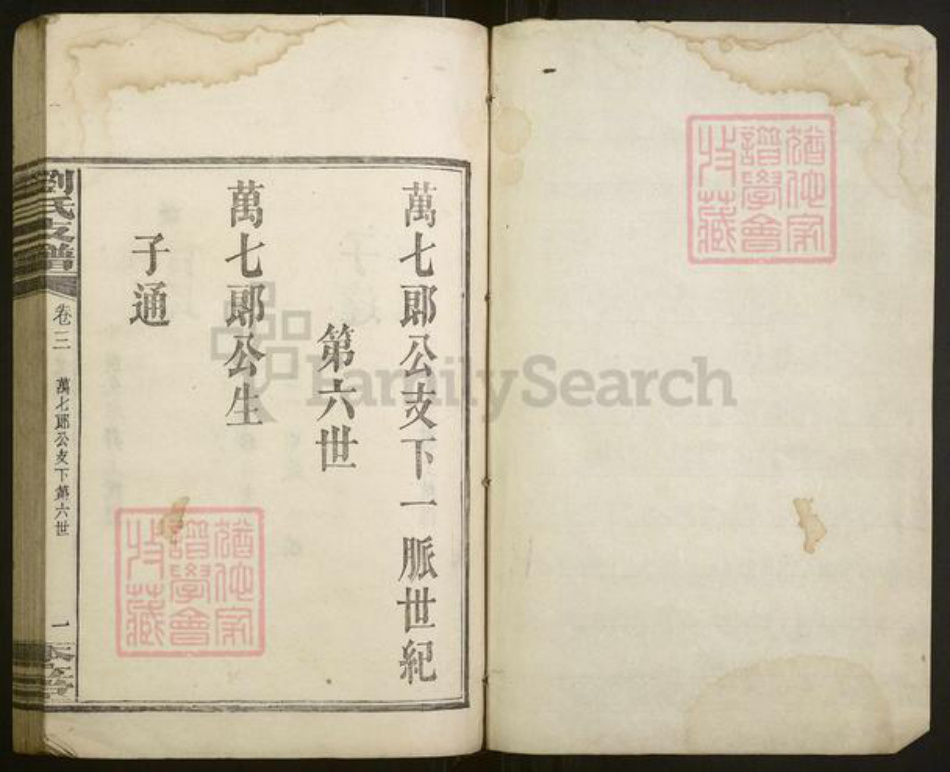 萬七郎公支下一脈世紀
第六世
萬七郎公生
子通
劉氏支譜
卷三
萬七郎公支下第六世
一
FamilySearch
譜學會
收藏
譜學會
收藏